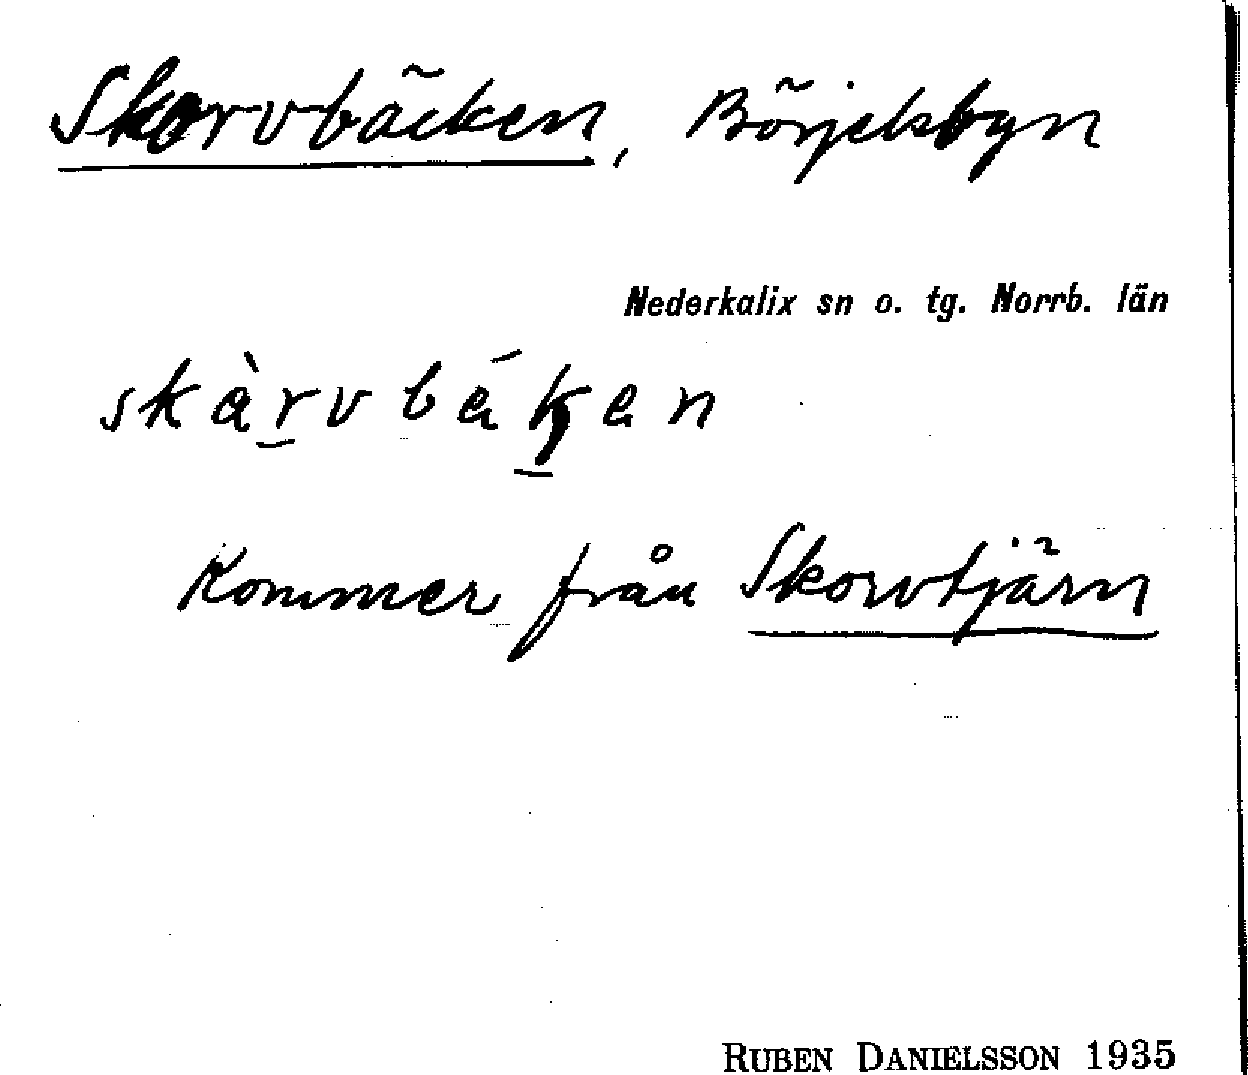 Skorvbäcken, Börjelsbyn
Nederkalix sn o. tg. Norrb. län
skàrvbáken
Kommer från Skorvtjärn
RUBEN DANIELSSON 1935